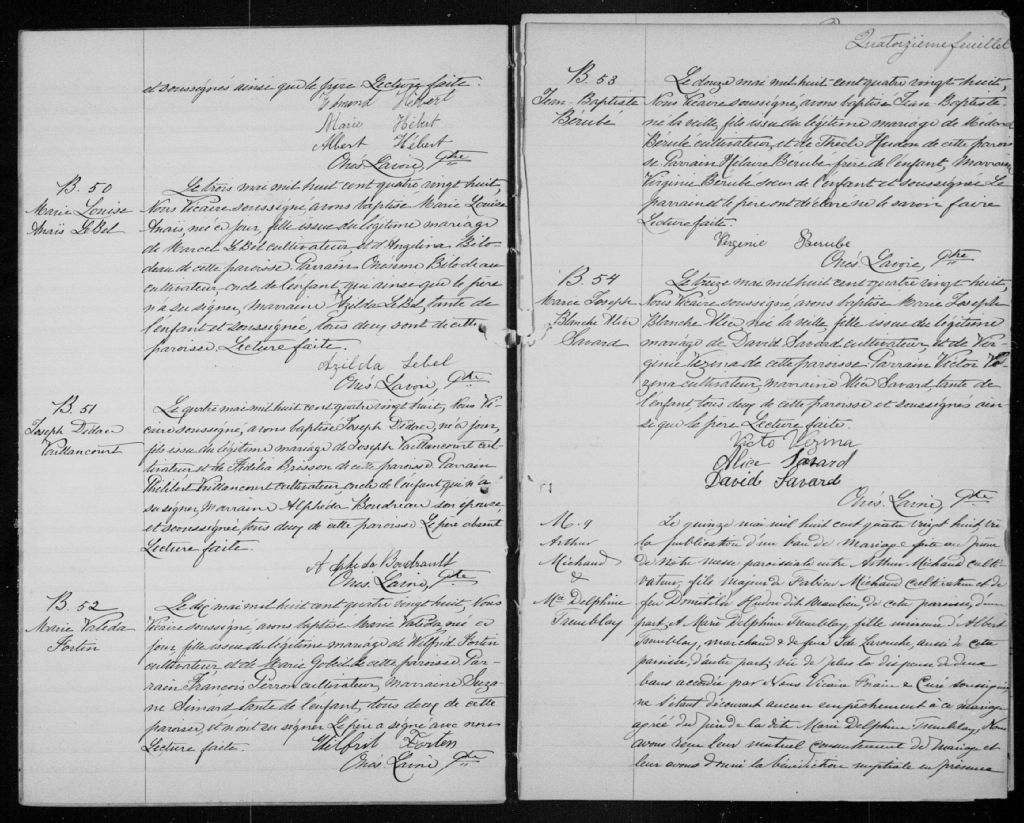 et soussignés ainsi que le père Lecture faite.
Edmond Hébert
Marie Hébert
Albert Hébert
Onés. Lavoie, Ptre
B. 50
Marie Louise
Anaïs LeBel
Le trois mai mil huit cent quatre vingt huit,
Nous Vicaire soussigné, avons baptisé Marie Louise
Anaïs, née ce jour, fille issue du légitime mariage
de Marcel LeBel cultivateur et d'Angelina Bilo-
deau de cette paroisse. Parrain Onesime Bilodeau
cultivateur, oncle de l'enfant qui ainsi que le père
n'a su signer, marraine Azilda LeBel, tante de
l'enfant et soussignée, tous deux sont de cette
paroisse. Lecture faite.
Azilda Lebel
Onés. Lavoie, Ptre
B. 51
Joseph Didace
Vaillancourt
Le quatre mai mil huit cent quatre vingt huit, Nous Vi-
caire soussigné, avons baptisé Joseph Didace, né ce jour,
fils issu du légitime mariage de Joseph Vaillancourt cul-
tivateur et de Fidélia Brisson de cette paroisse Parrain
Philibert Vaillancourt cultivateur, oncle de l'enfant qui n'a
su signer, Marraine Alphéda Boudreau son épouse
et soussignée, tous deux de cette paroisse Le père absent
Lecture faite.
Alpheda Boudrault
Onés. Lavoie, Ptre
B. 52
Marie Valéda
Fortin
Le dix mai mil huit cent quatre vingt huit, Nous
Vicaire soussigné, avons baptisé Marie Valéda, née ce
jour, fille issue du légitime mariage de Wilfrid Fortin
cultivateur et de Marie Gobeil de cette paroisse Par-
rain François Perron cultivateur, Marraine Suzan-
ne Simard tante de l'enfant, tous deux de cette
paroisse, et n'ont su signer. Le père a signé avec nous
Lecture faite.
Wilfrit Forten
Onés. Lavoie, Ptre
Quatorzième feuillet
B. 53
Jean-Baptiste
Bérubé
Le douze mai mil huit cent quatre vingt huit,
Nous Vicaire soussigné, avons baptisé Jean-Baptiste
né la veille, fils issu du légitime mariage de Médard
Bérubé cultivateur, et de Thecle Heudon de cette parois-
se Parrain Helaire Bérubé frère de l'enfant, Marraine
Virginie Bérubé soeur de l'enfant et soussignée Le
parrain et le père ont déclaré ne le savoir faire
Lecture faite.
Virginie Berube
Onés. Lavoie, Ptre
B. 54
Marie Joseph
Blanche Alice
Savard
Le treize mai mil huit cent quatre vingt huit,
Nous Vicaire soussigné avons baptisé Marie Joseph
Blanche Alice, née la veille, fille issue du légitime
mariage de David Savard cultivateur et de Vir-
ginie Vezina de cette paroisse Parrain Victor Ve-
zina cultivateur, marraine Alice Savard, tante de
l'enfant tous deux de cette paroisse et soussignés ain-
si que le père Lecture faite.
Victo Vezina
Alice Savard
David Savard
Onés. Lavoie, Ptre
M. 9
Arthur
Michaud
&
Mie Delphine
Tremblay
Le quinze mai mil huit cent quatre vingt huit, vu
la publication d'un ban de mariage faite au prône
de notre messe paroissiale entre Arthur Michaud culti-
vateur, fils majeur de Fabien Michaud cultivateur et de
feu Domitilde Hudon dit Beaulieu, de cette paroisse, d'une
part, et Marie Delphine Tremblay, fille mineure d'Albert
Tremblay, marchand & de feue Ida Lavouche, aussi de cette
paroisse, d'autre part; vu de plus la dispense de deux
bans accordée par Nous Vicaire Forain & Curé soussigné
ne s'étant découvert aucun empêchement à ce mariage
agréé du père de la dite Marie Delphine Tremblay, Nous
avons reçu leur mutuel consentement de mariage et
leur avons donné la bénédiction nuptiale en présence